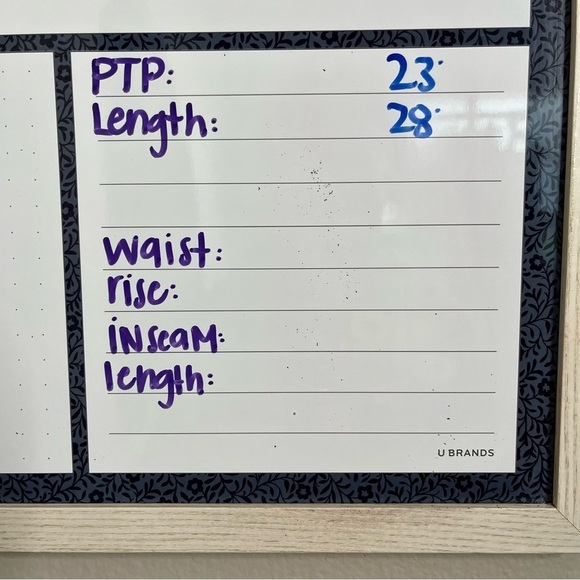 PTP: 23"
Length: 28"
Waist:
rise:
iNseaM:
length:
U BRANDS